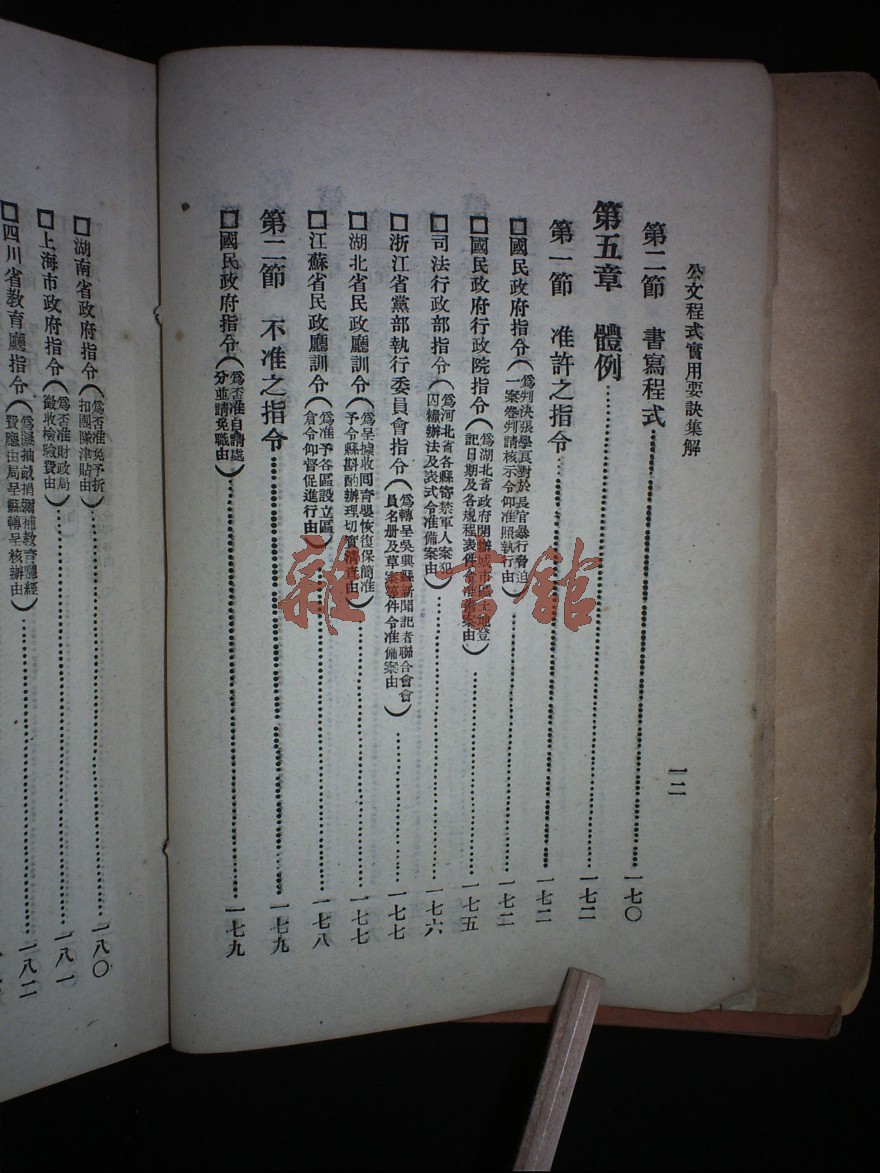 公文程式實用要訣集解
一二
第二節　書寫程式…一七〇
第五章　體例…一七二
第一節　准許之指令…一七二
□國民政府指令(爲判決張學良對於長官暴行脅迫一案卷判請核示令仰准照執行由)…一七二
□國民政府行政院指令(爲湖北省政府開辦城市區土地登記日期及各規程表件令准備案由)…一七五
□司法行政部指令(爲河北省各縣寄禁軍人案犯囚糧辦法及表式令准備案由)…一七六
□浙江省黨部執行委員會指令(爲轉呈吳興縣新聞記者聯合會會員名册及草案等件令准備案由)…一七七
□湖北省民政廳訓令(爲呈據收回育嬰恢復保簡准予令縣斟酌辦理切實清查由)…一七七
□江蘇省民政廳訓令(爲准予各區設立區倉令仰督促進行由)…一七八
第二節　不准之指令…一七九
□國民政府指令(爲否准自請處分並請免職由)…一七九
□湖南省政府指令(爲否准免予折扣團隊津貼由)…一八〇
□上海市政府指令(爲否准財政局徵收檢驗費由)…一八一
□四川省教育廳指令(爲擬抽畝捐彌補教育經費應由局呈縣轉呈核辦由)…一八二
雜書館